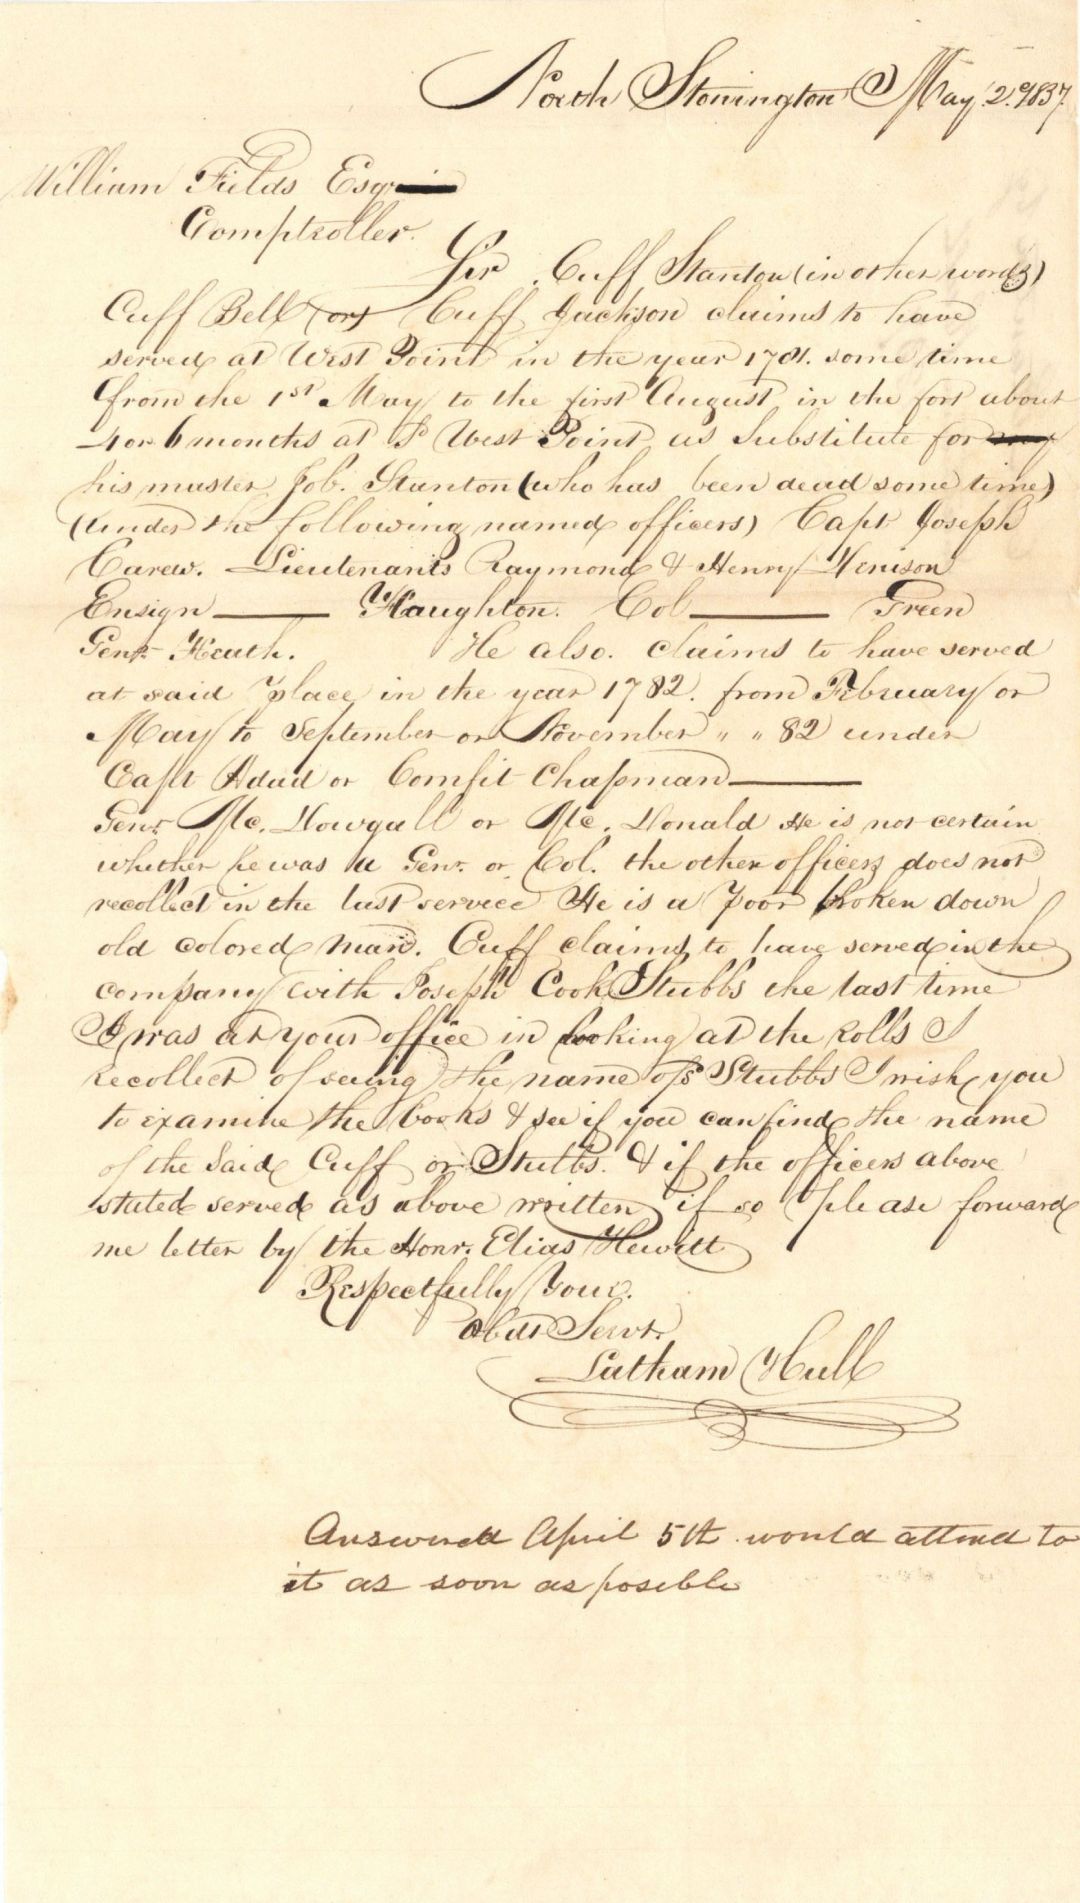 North Stonington May 2. 1837.
William Fields Esqr
Comptroller.
Sir. Cuff Stanton (in other words)
Cuff Bell (or) Cuff Jackson claims to have
served at West Point in the year 1781. some time
from the 1st May to the first August in the fort about
4 or 6 months at Sd West Point as Substitute for
his master Job. Stanton (who has been dead some time)
(under the following named officers) Capt Joseph
Carew. Lieutenants Raymond & Henry Henison
Ensign ——— Haughton. Col ——— Green
Genr Heath. He also. claims to have served
at said place in the year 1782. from February or
May to September or November " " 82 under
Capt Adad or Comfit Chapman ———
Genr Mc. Dowgall or Mc. Donald He is not certain
whether he was a Genr. or Col. the other officers does not
recollect in the last service He is a poor broken down
old colored man. Cuff claims to have served in the
company with Joseph Cook Stubbs the last time
I was at your office in looking at the rolls I
recollect of seeing the name of sd Stubbs I wish you
to examine the books & see if you can find the name
of the Said Cuff or Stubbs. & if the officers above
stated served as above written if so please forward
me letter by the Honr. Elias Hewitt
Respectfully Your.
obdt Servt.
Latham Hull
Answered April 5th would attend to
it as soon as posible